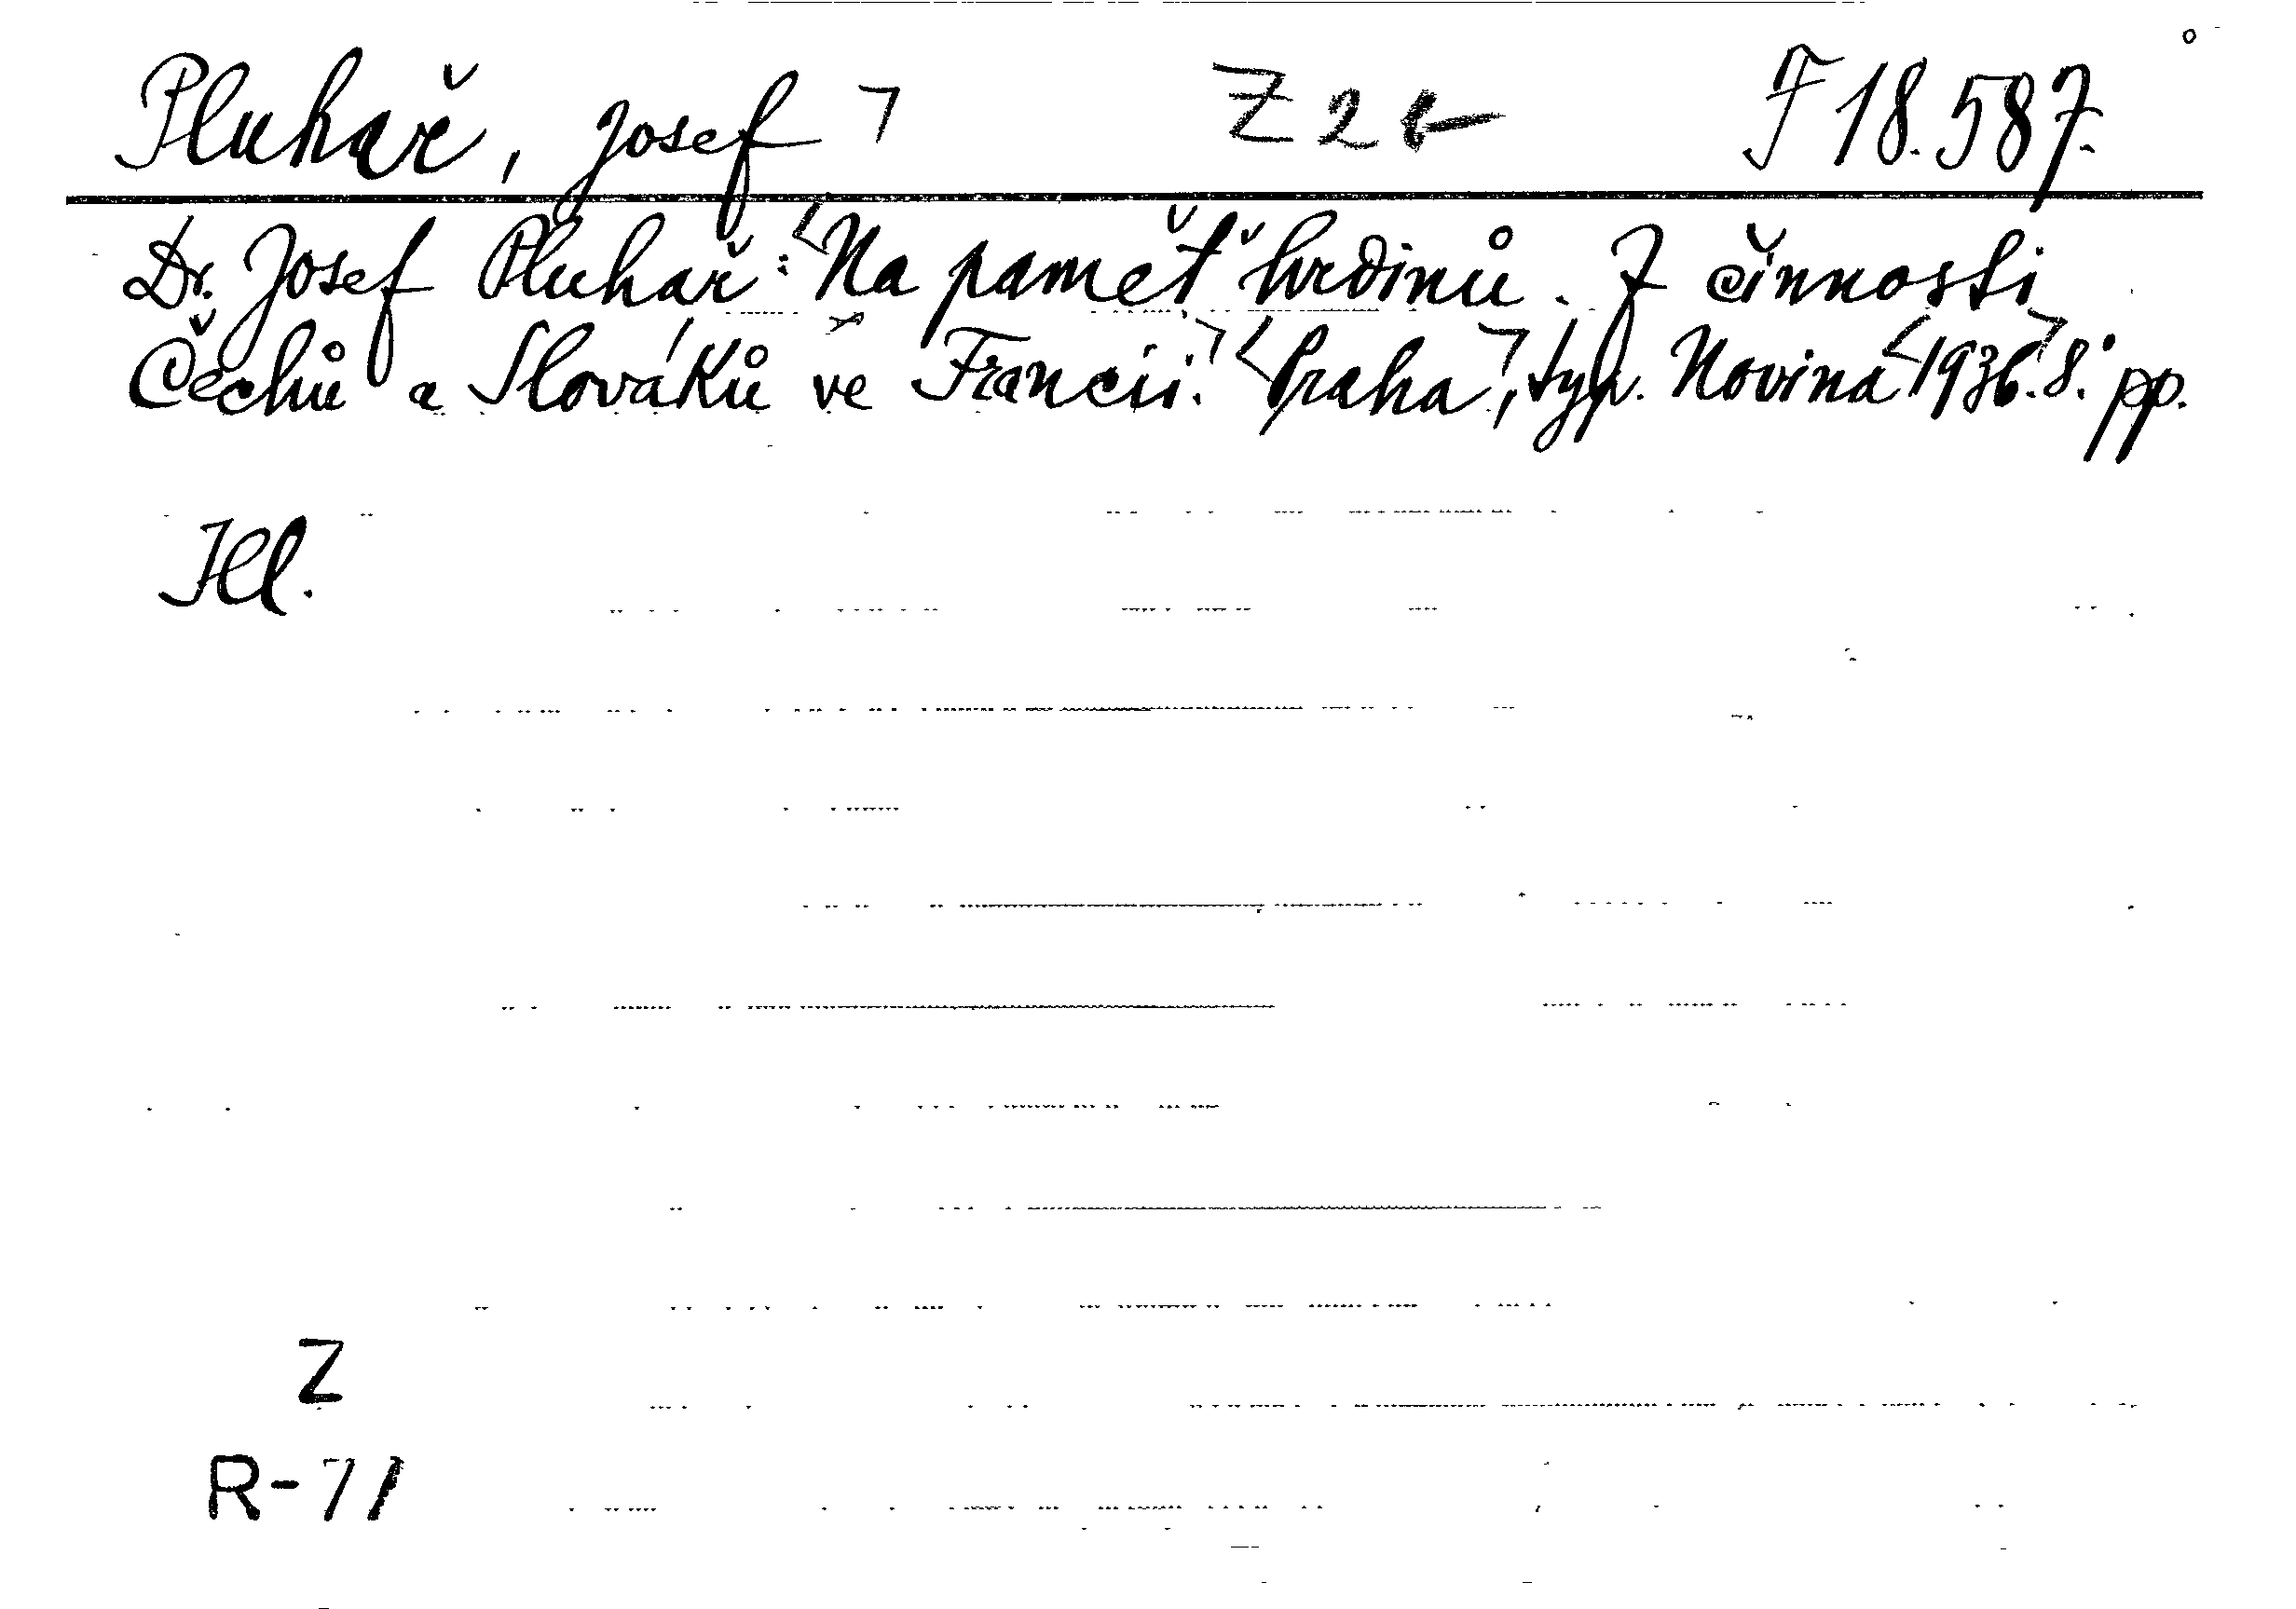 Pluhař, Josef ㄱ Z 2 F 18.587.
Dr. Josef Pluhař: <Na pamět hrdinů. Z činnosti
Čechů a Slováků ve Francii.ㄱ <Prahaㄱ, typ. Novina <1936.ㄱ 8.° pp.
Ill.
Z
R-71